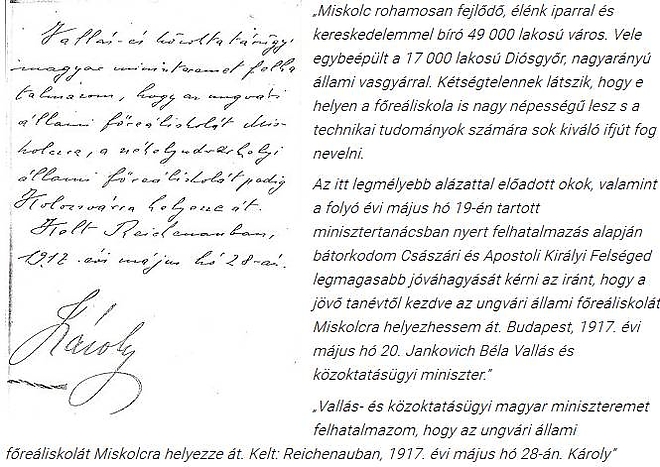 Vallás- és közoktatásügyi
magyar miniszteremet felha
talmazom, hogy az ungvári
állami főreáliskolát Mis-
kolczra, a székelyudvarhelyi
állami főreáliskolát pedig
Kolozsvárra helyezze át.
Kelt Reichenauban,
1917. évi május hó 28-án.
Károly
„Miskolc rohamosan fejlődő, élénk iparral és
kereskedelemmel bíró 49 000 lakosú város. Vele
egybeépült a 17 000 lakosú Diósgyőr, nagyarányú
állami vasgyárral. Kétségtelennek látszik, hogy e
helyen a főreáliskola is nagy népességű lesz s a
technikai tudományok számára sok kiváló ifjút fog
nevelni.
Az itt legmélyebb alázattal előadott okok, valamint
a folyó évi május hó 19-én tartott
minisztertanácsban nyert felhatalmazás alapján
bátorkodom Császári és Apostoli Királyi Felséged
legmagasabb jóváhagyását kérni az iránt, hogy a
jövő tanévtől kezdve az ungvári állami főreáliskolát
Miskolcra helyezhessem át. Budapest, 1917. évi
május hó 20. Jankovich Béla Vallás és
közoktatásügyi miniszter.”
„Vallás- és közoktatásügyi magyar miniszteremet
felhatalmazom, hogy az ungvári állami
főreáliskolát Miskolcra helyezze át. Kelt: Reichenauban, 1917. évi május hó 28-án. Károly”